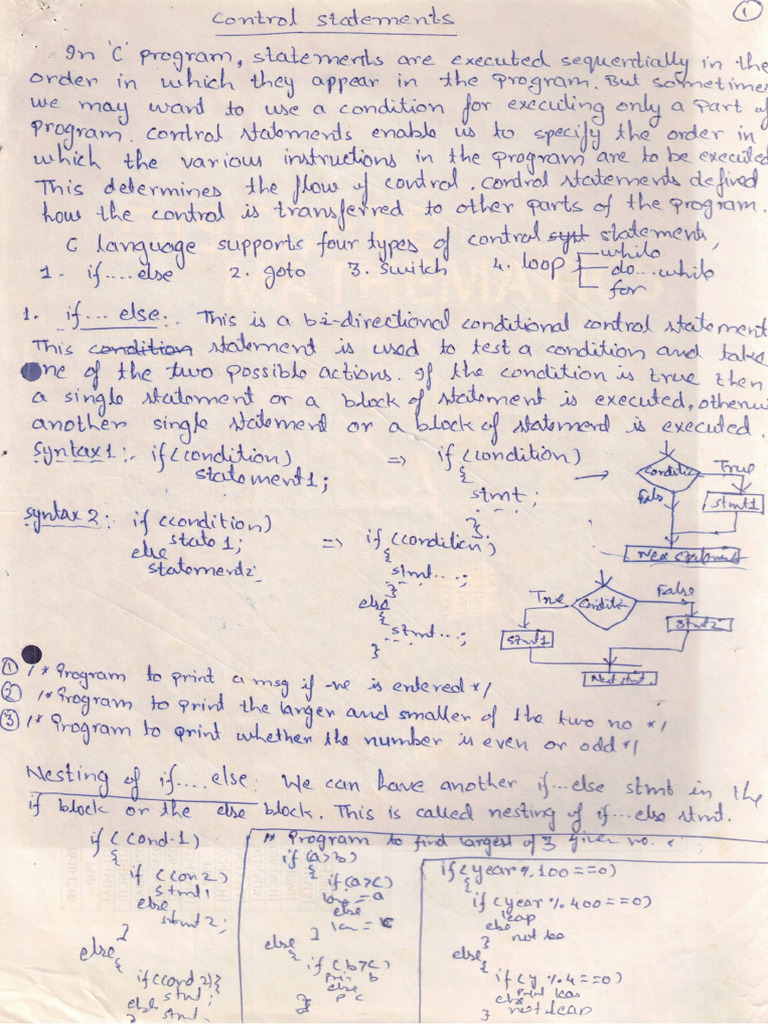 Control statements
1
In 'C' program, statements are executed sequentially in the
order in which they appear in the program. But sometimes
we may want to use a condition for executing only a part of
Program. Control statements enable us to specify the order in
which the various instructions in the program are to be executed
This determines the flow of control. control statements defined
how the control is transferred to other parts of the program.
C language supports four types of control syt statements,
1. if....else 2. goto 3. switch 4. loop
while
do...while
for
1. if... else:. This is a bi-directional conditional control statement
This condition statement is used to test a condition and take
one of the two possible actions. If the condition is true then
a single statement or a block of statement is executed, otherwi
another single statement or a block of statement is executed.
Syntax1:. if(condition)
statement1;
=> if (condition)
{
stmt ;
};
True
False
Stmt1
Syntax2:. if (condition)
state 1;
else
statement2;
=> if (condition)
{
stmt...;
}
else
{
stmt...;
}
True
False
Stmt1
Stmt2
Next stmt.
① /* Program to print a msg if -ve is entered */
② /* Program to print the larger and smaller of the two no */
③ /* Program to print whether the number is even or odd */
Nesting of if....else: We can have another if...else stmt in the
if block or the else block. This is called nesting of if...else stmt.
if (Cond-1)
{
if (Con2)
stmt1
else
stmt2;
}
else
{
if(cond2){
stmt;
else
} stmt.
/* Program to find largest of 3 given no.
if(a>b)
{
if(a>c)
= a
else
= c
}
else
{
if(b>c)
Prin b
else
P c
}
if(year % 100 ==0)
{
if(year % 400 ==0)
leap
else
} not lea
else
{
if(y % 4 ==0)
Print lea
else
} not leap